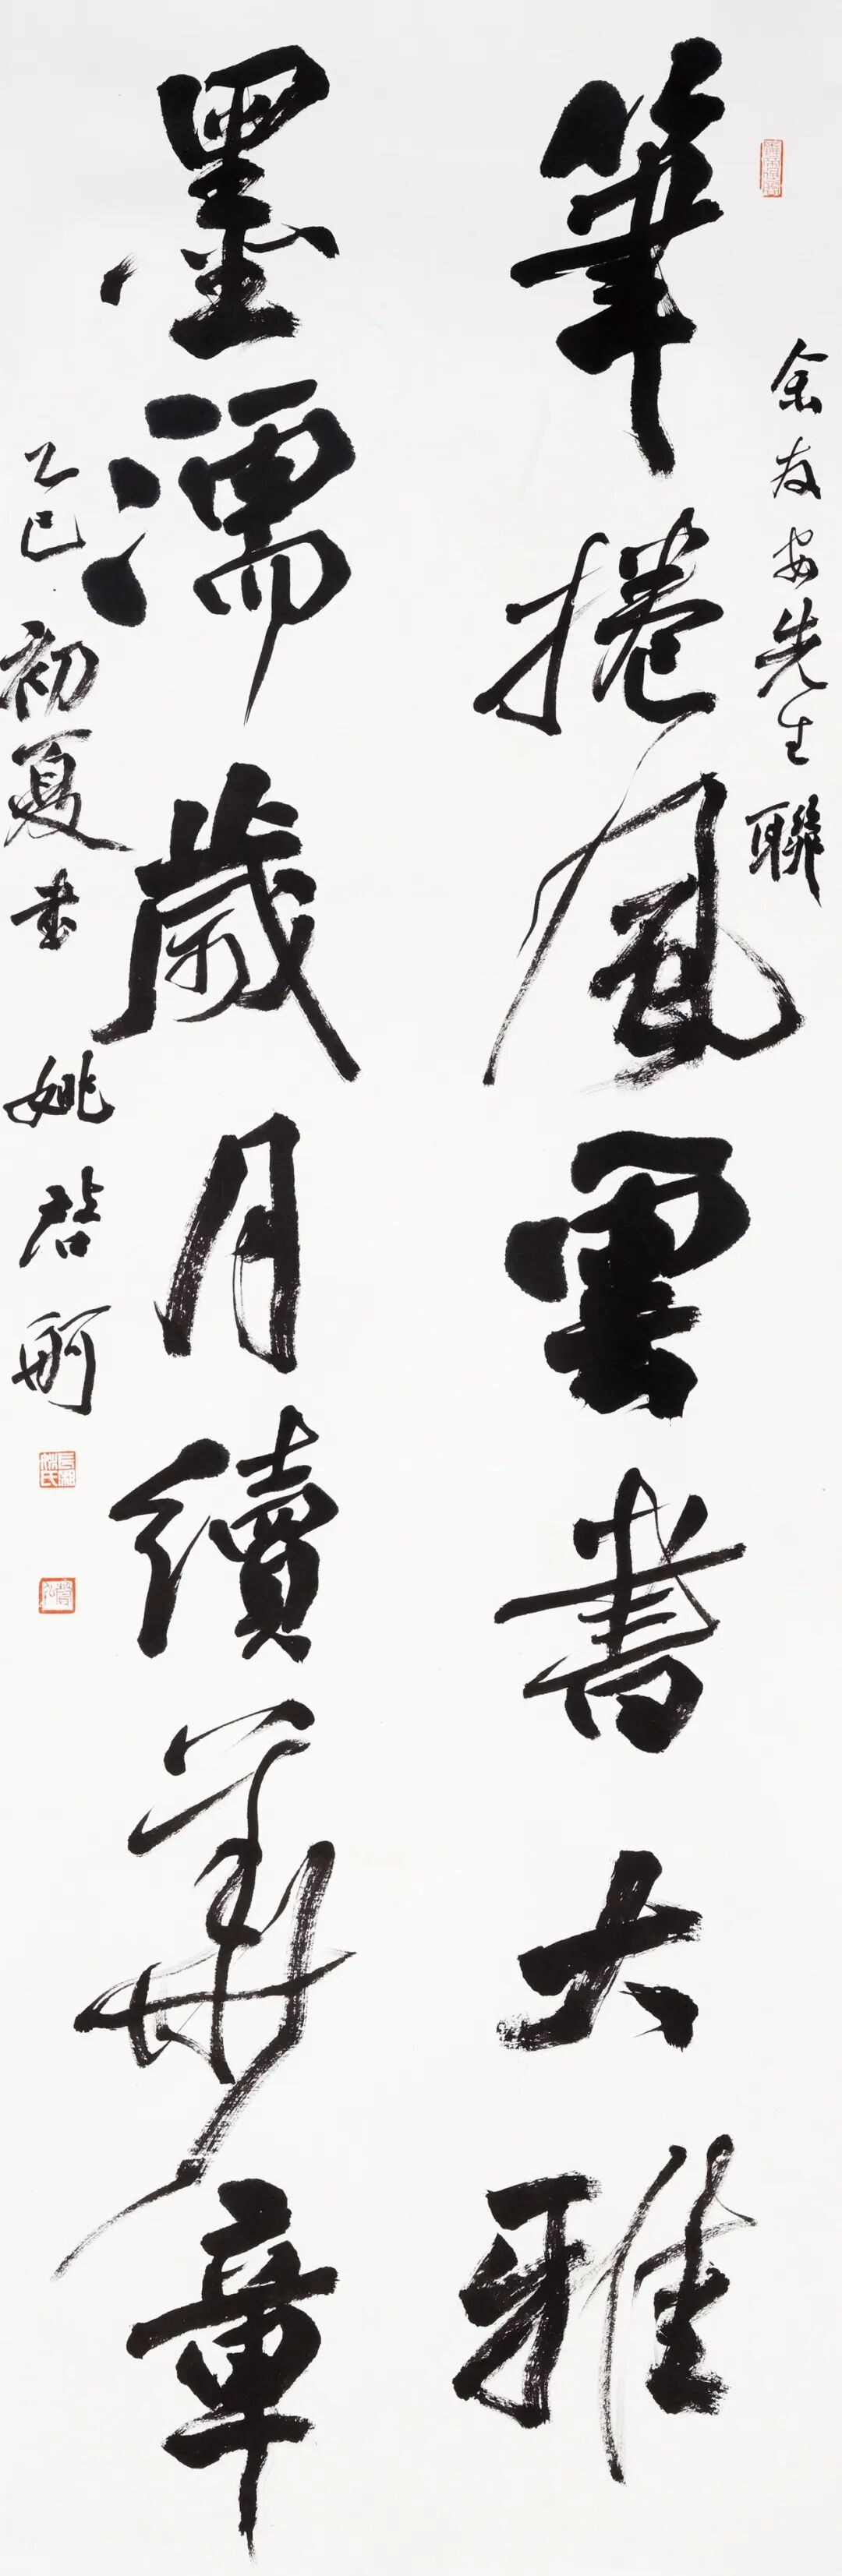 余友安先生聯
筆捲風雲書大雅
墨濡歲月續華章
乙巳初夏書 姚啓